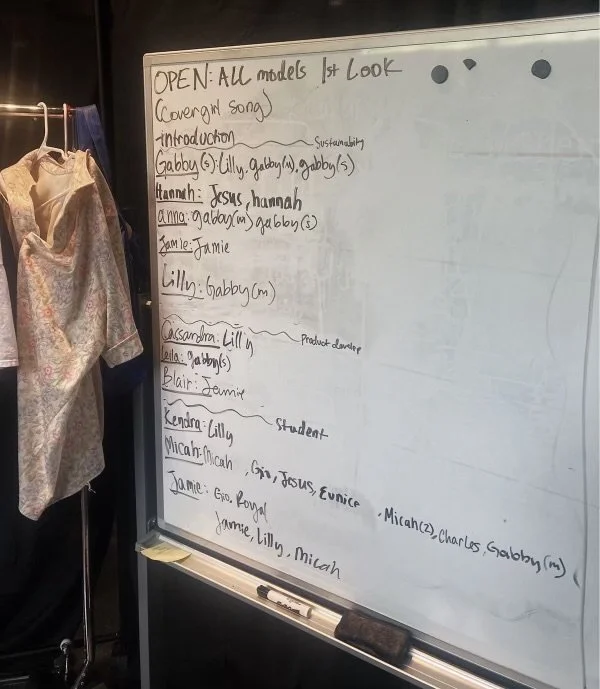 OPEN: ALL models 1st Look
(Covergirl song)
introduction
Sustainability
Gabby(s): Lilly, gabby(m), gabby(s)
Hannah: Jesus, hannah
anna: gabby(m) gabby(s)
Jamie: Jamie
Lilly: Gabby(m)
Product develop
Cassandra: Lilly
gabby(s)
Blair: Jamie
Student
Kendra: Lilly
Micah: Micah, Gio, Jesus, Eunice, Micah(2), Charles, Gabby(m)
Jamie: Gio, Royal
Jamie, Lilly, Micah